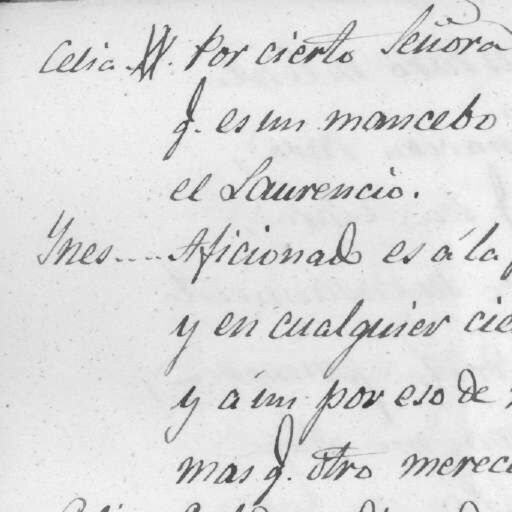 Celia. Por cierto Señora
q. es un mancebo
el Laurencio.
Ynes.... Aficionado es á la
y en cualquier cie
y a un por eso de
mas q. otro merece